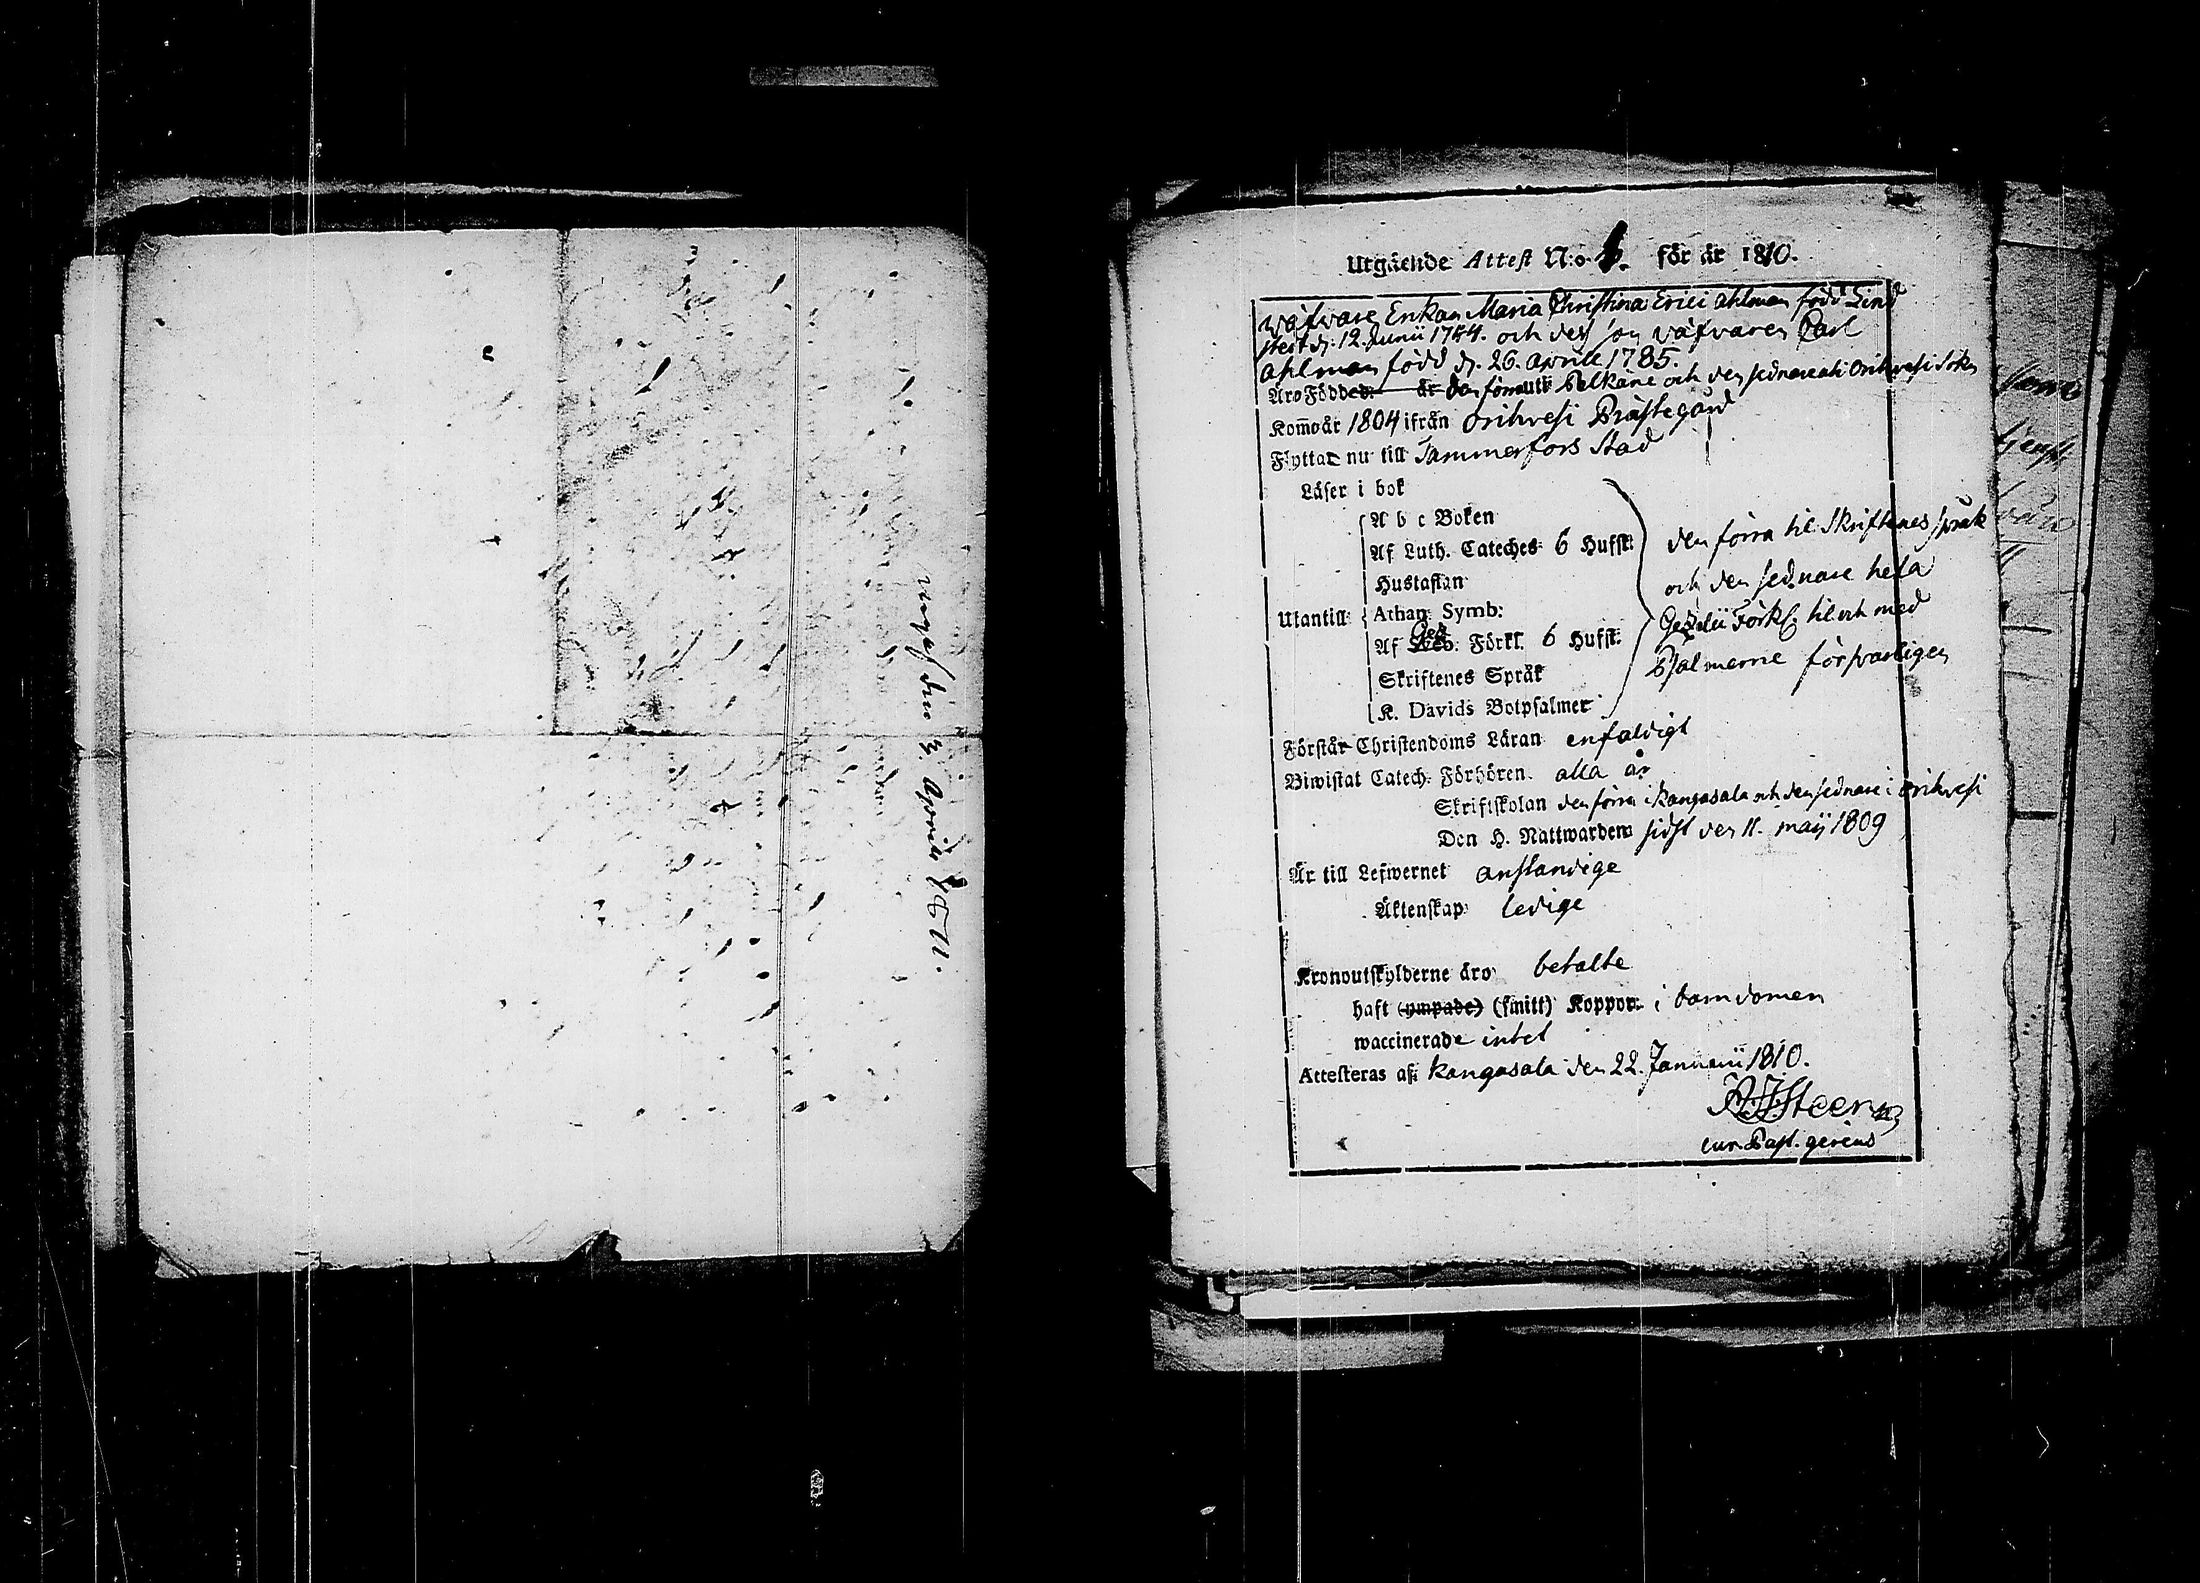 den 3. Aprill 1811.
Utgående Attest N:o för år 1810.
Wäfvare Enkan Maria Christina Erici Ahlman född Lind
stedt d. 12. Junii 1754. och des son väfvaren Carl
Ahlman född d. 26. Aprill 1785.
Äro Födde den förra uti Palkäne och den sednare uti Orihvesi Sokn
Kom̅o år 1804 ifrån Orihvesi Prästegård
Flyttar nu till Tammerfors Stad
Läser i bok
A b c Boken
Af Luth. Cateches 6 Hufst:
Hustaflan
Utantill Athan: Symb:
Af Gez. Förkl. 6 Hufst:
Skriftenes Språk
K. Davids Botpsalmer
den förra til Skriftenes språk
och den sednare hela
Gezelii Förkl. til och med
Psalmerne försvarligen
Förstår Christendoms Läran enfaldigt
Biwistat Catech: Förhören alla år
Skriftskolan den förra i Kangasala och den sednare i Orihvesi
Den H. Nattwarden sidst den 11. Maij 1809
Är till Lefwernet anständige
Äktenskap ledige
Kronoutskylderne äro betalte
haft (ympade) (smitt) Koppor i barndomen
waccinerade intet
Attesteras af: Kangasala den 22. Januarii 1810.
Steen
cur. Past. gerens